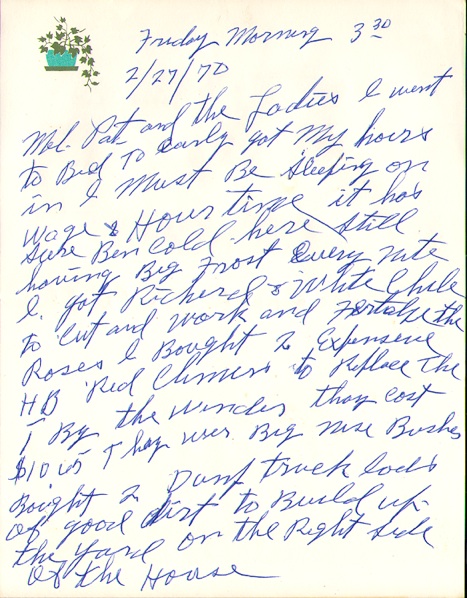 Friday Morning 3 30
2/27/70
Mel- Pat and the Ladies I went
to Bed To early got My hours
in I Must Be Sleeping on
Wage & Hour time it has
Sure Ben Cold here Still
having Big Frost Every nite
I got Richerd & White Chile
To Cut and work and the
Roses I Bought 2 Expensive
HB Red Climers to Replace The
1 By the Winder thay Cost
$10 Thay wer Big nise Bushes
Bought 2 Dump truck lods
of good dirt to Build up
the Yard on the Right Side
of the House